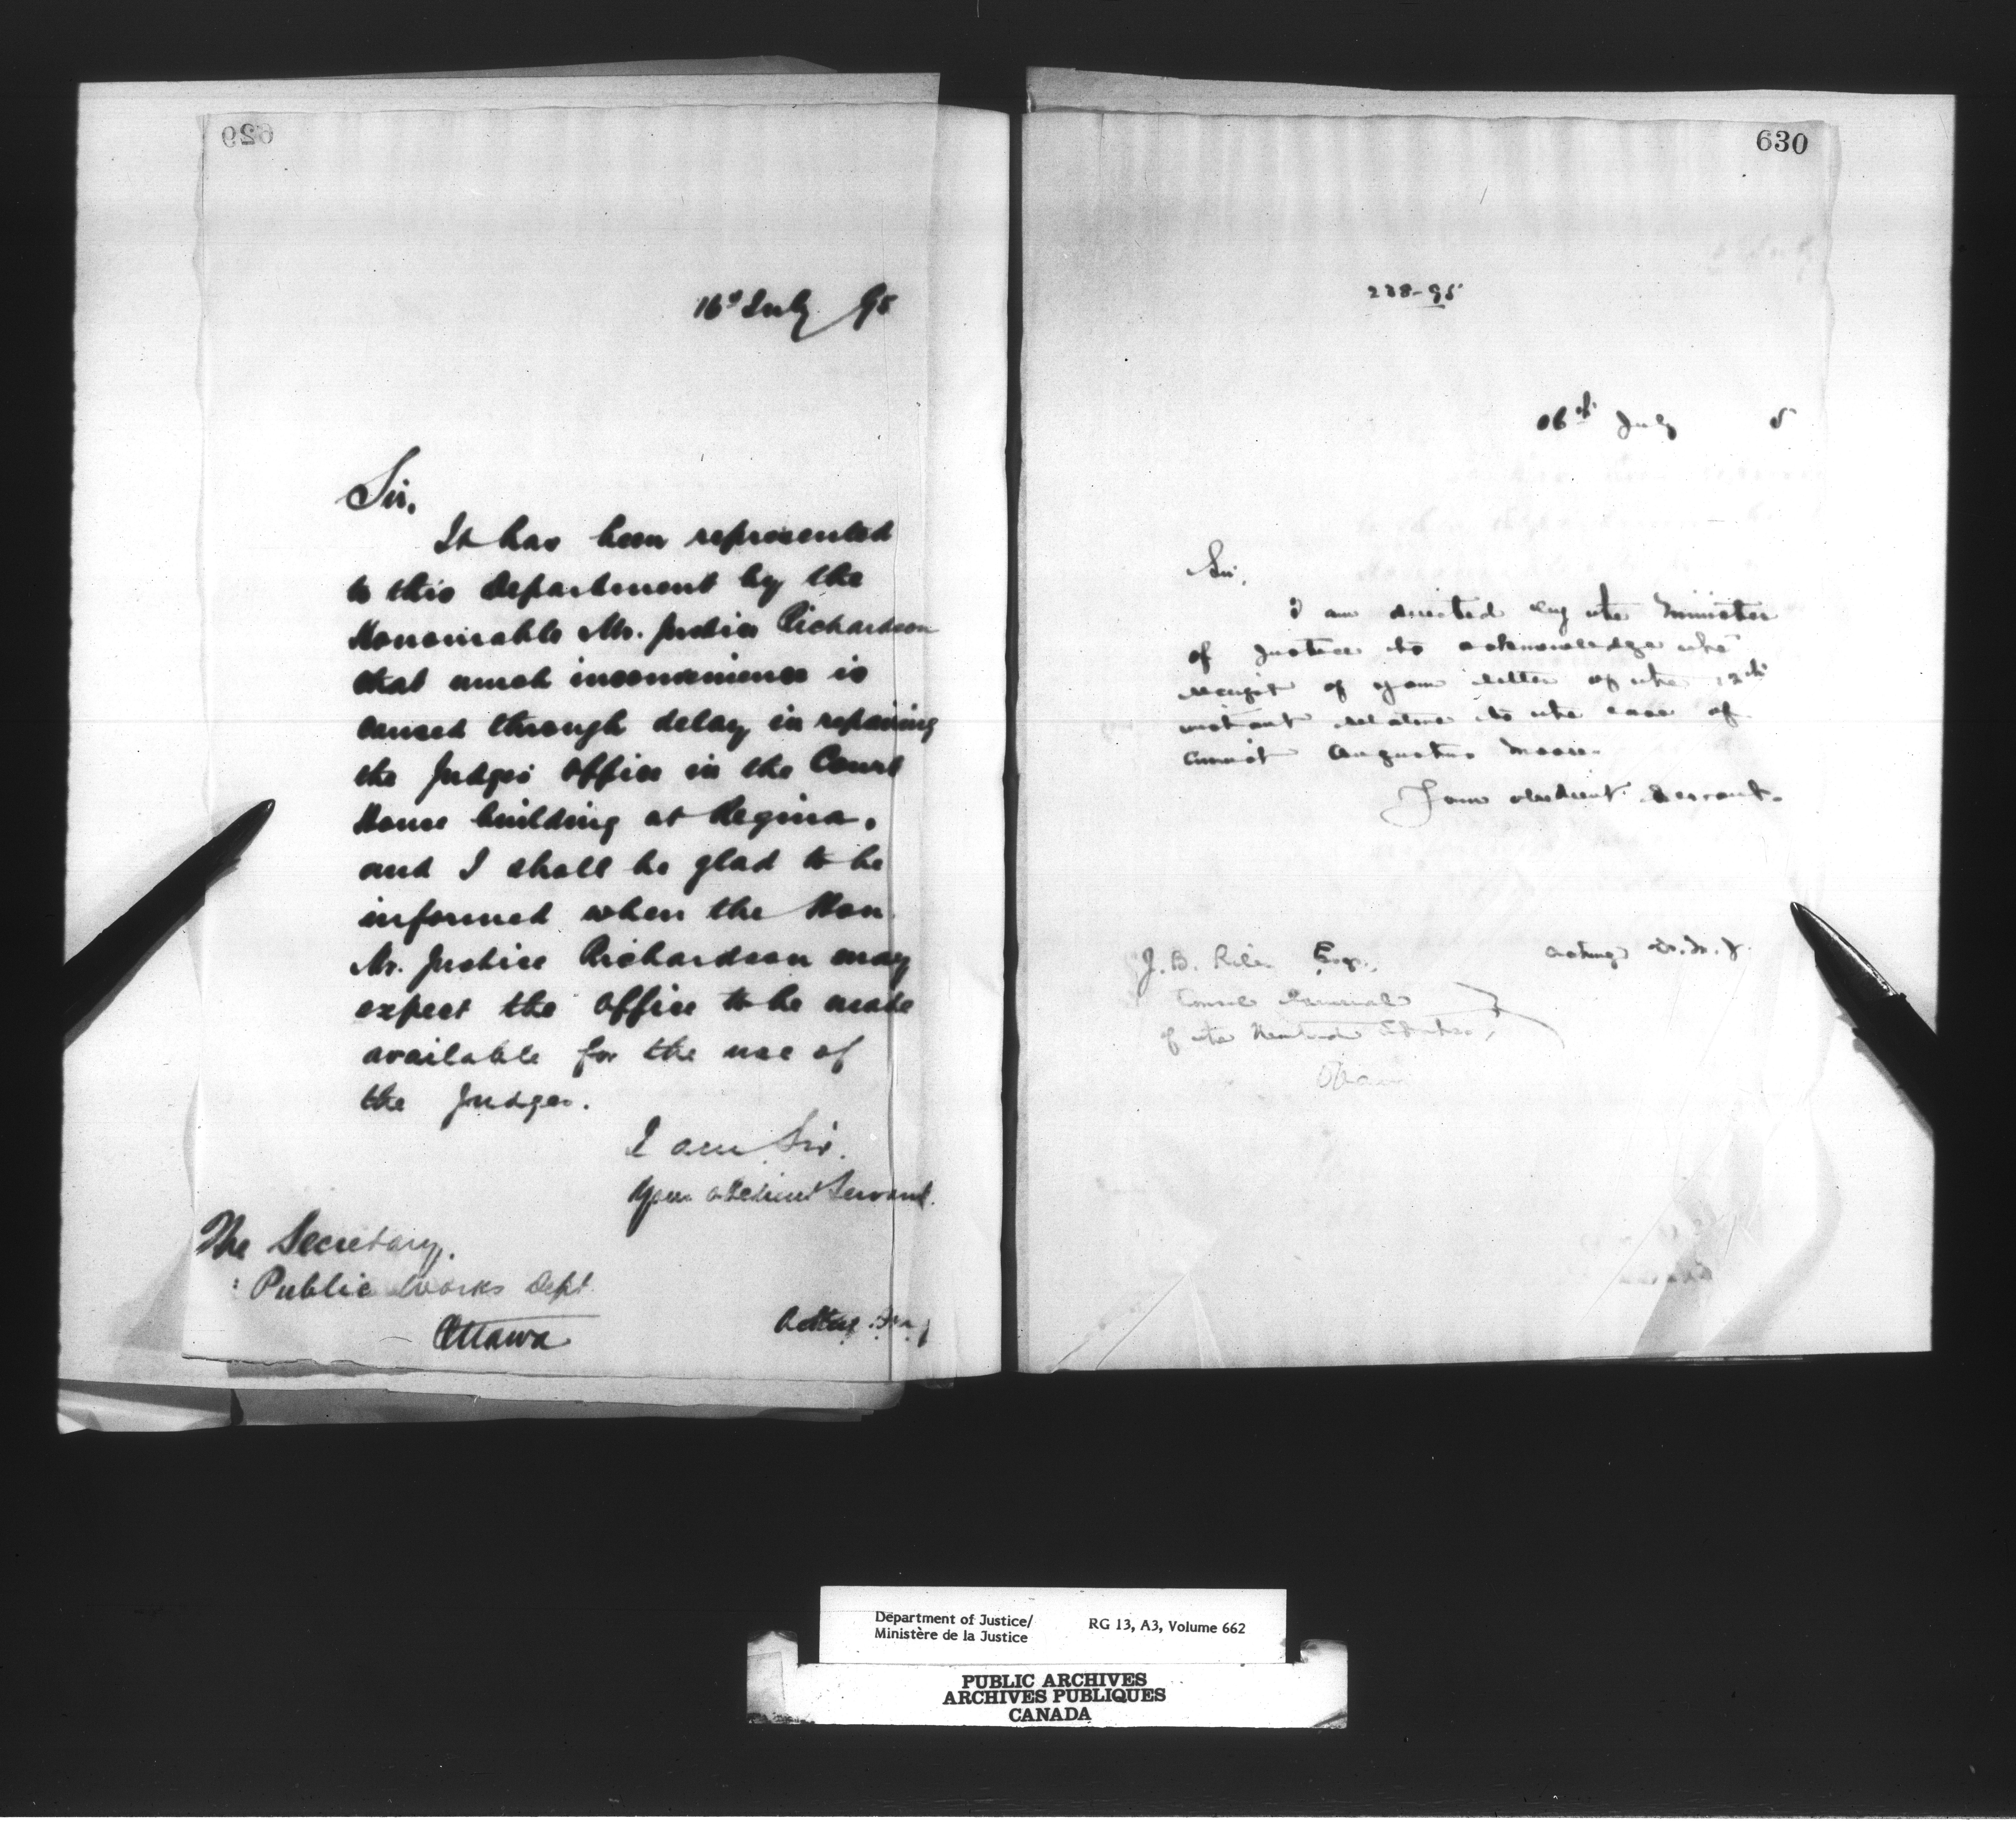 629
16th July 95
Sir,
It has been represented
to this Department by the
Honourable Mr. Justice Richardson
that much inconvenience is
caused through delay in repairing
the Judges Office in the Court
House building at Regina,
and I shall be glad to be
informed when the Hon.
Mr. Justice Richardson may
expect the Office to be made
available for the use of
the Judges.
I am Sir.
Your obedient Servant.
The Secretary,
Public Works Dept.
Ottawa
Acting D.M.J.
630
238-95
16th July 5
Sir,
I am directed by the Minister
of Justice to acknowledge the
receipt of your letter of the 12th
instant relative to the case of
Augustus Moore.
I am obedient Servant.
Acting D.M.J.
J. B. Riley Esq.,
Consul General
of the United States,
Ottawa
Department of Justice/
Ministère de la Justice
RG 13, A3, Volume 662
PUBLIC ARCHIVES
ARCHIVES PUBLIQUES
CANADA